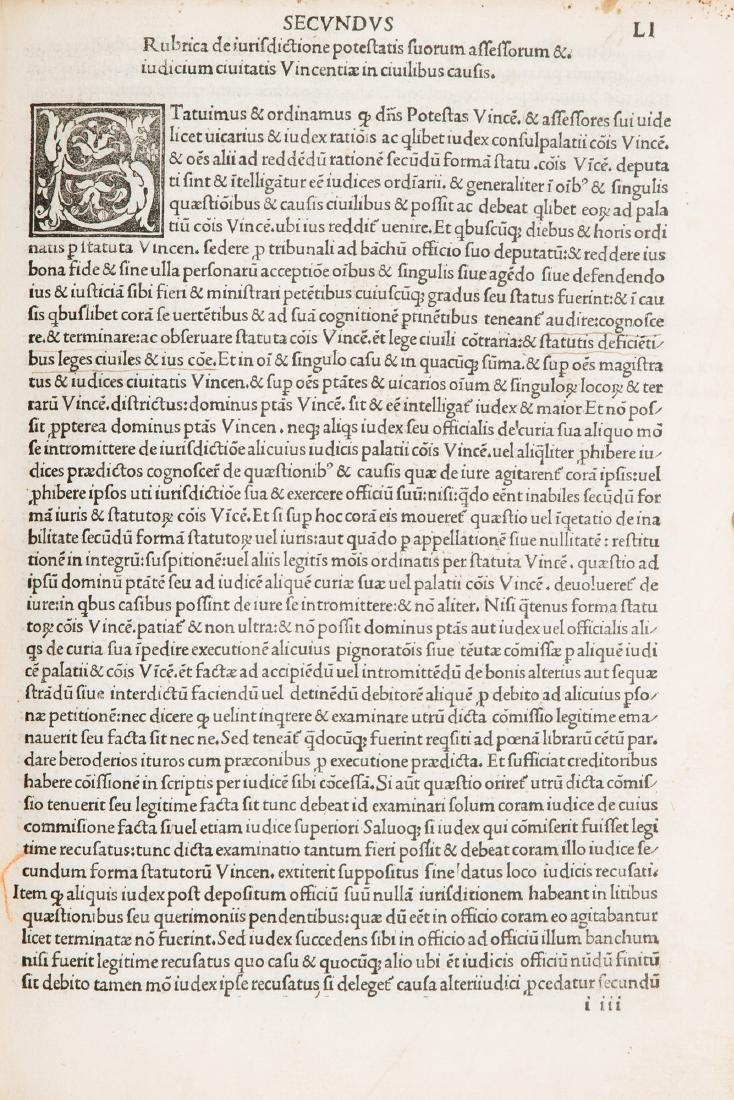 SECVNDVS
LI
Rubrica de iurisdictione potestatis suorum assessorum &.
iudicium ciuitatis Vincentiæ in ciuilibus causis.
STatuimus & ordinamus ꝙ dñs Potestas Vincē. & assessores sui uide
licet uicarius & iudex ratiōis ac qlibet iudex consul palatii cōis Vincē.
& oēs alii ad reddēdū rationē secūdū formā statu .cōis Vīcē. deputa
ti sint & ītelligātur eē iudices ordīarii. & generaliter ī oībꝰ & singulis
quæstiōibus & causis ciuilibus & possit ac debeat qlibet eoꝝ ad pala
tiū cōis Vincē.ubi ius reddit̄ uenire.Et qbuscūqꝫ diebus & horis ordi
natis p statuta Vincen. sedere ꝓ tribunali ad bāchū officio suo deputatū:& reddere ius
bona fide & sine ulla personarū acceptiōe oībus & singulis siue agēdo siue defendendo
ius & iusticiā sibi fieri & ministrari petētibus cuiuscūqꝫ gradus seu status fuerint:& ī cau
sis qbuslibet corā se uertētibus & ad suā cognitionē ptinētibus teneant̄ audire:cognosce
re.& terminare:ac obseruare statuta cōis Vincē.ēt lege ciuili cōtraria:& statutis deficiēti/
bus leges ciuiles & ius cōe.Et in oī & singulo casu & in quacūqꝫ sūma.& sup oēs magistra
tus & iudices ciuitatis Vincen.& sup oēs ptātes & uicarios oīum & singuloꝝ locoꝝ & ter
rarū Vincē.districtus:dominus ptās Vincē. sit & eē intelligat̄ iudex & maior Et nō pos/
sit ꝓpterea dominus ptās Vincen . neqꝫ aliqs iudex seu officialis de curia sua aliquo mō
se intromittere de iurisdictiōe alicuius iudicis palatii cōis Vincē.uel aliq̄liter ꝓhibere iu/
dices prædictos cognoscer̄ de quæstionibꝰ & causis quæ de iure agitarent̄ corā ipsis:uel
ꝓhibere ipsos uti iurisdictiōe sua & exercere officiū suū:nisi:q̄do eēnt inabiles secūdū for
mā iuris & statutoꝝ cōis Vīcē.Et si sup hoc corā eis moueret̄ quæstio uel īqetatio de ina
bilitate secūdū formā statutoꝝ uel iuris:aut quādo p appellationē siue nullitatē: restitu
tionē in integrū:suspitionē:uel aliis legitīs mōis ordinatis per statuta Vincē . quæstio ad
ipsū dominū ptātē seu ad iudicē aliquē curiæ suæ uel palatii cōis Vincē . deuolueret̄ de
iure:in qbus casibus possint de iure se intromittere:& nō aliter. Nisi q̄tenus forma statu
toꝝ cōis Vincē.patiat̄ & non ultra:& nō possit dominus ptās aut iudex uel officialis ali/
qs de curia sua īpedire executionē alicuius pignoratōis siue tēutæ cōmissæ p aliquē iudi
cē palatii & cōis Vīcē.ēt factæ ad accipiēdū uel intromittēdū de bonis alterius aut sequæ
strādū siue interdictū faciendū uel detinēdū debitorē aliquē ꝓ debito ad alicuius pso/
næ petitionē:nec dicere ꝙ uelint inqrere & examinare utrū dicta cōmissio legitime ema/
nauerit seu facta sit nec ne. Sed teneāt̄ q̄docūqꝫ fuerint reqsiti ad pœnā librarū cētū par.
dare beroderios ituros cum præconibus ꝓ executione prædicta. Et sufficiat creditoribus
habere cōissionē in scriptis per iudicē sibi cōcessā. Si aūt quæstio oriret̄ utrū dicta cōmis/
sio tenuerit seu legitime facta sit tunc debeat id examinari solum coram iudice de cuius
commisione facta si uel etiam iudice superiori Saluoqꝫ si iudex qui cōmiserit fuisset legi
time recusatus:tunc dicta examinatio tantum fieri possit & debeat coram illo iudice se/
cundum forma statutorū Vincen. extiterit suppositus siue datus loco iudicis recusati.
Item ꝙ aliquis iudex post depositum officiū suū nullā iurisditionem habeant in litibus
quæstionibus seu querimoniis pendentibus:quæ dū eēt in officio coram eo agitabantur
licet terminatæ nō fuerint. Sed iudex succedens sibi in officio ad officiū illum banchum
nisi fuerit legitime recusatus quo casu & quocūqꝫ alio ubi ēt iudicis officiū nūdū finitū
sit debito tamen mō iudex ipse recusatus si deleget̄ causa alteri iudici ꝓcedatur secundū
i iii